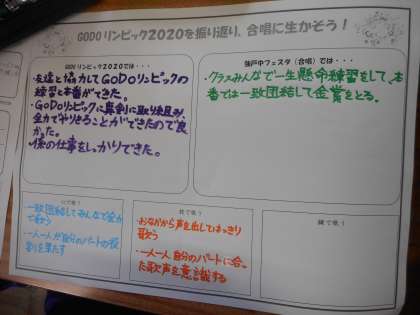 GODOリンピック2020を振り返り、合唱に生かそう！
GODOリンピック2020では・・・
・友達と協力してGODOリンピックの
練習と本番ができた。
・GODOリンピックに真剣に取り組み、
全力でやりきることができたので良
かった。
・係の仕事をしっかりできた。
強戸中フェスタ（合唱）では・・・
・クラスみんなで一生懸命練習をして、本
番では一致団結して金賞をとる。
心で歌う
・一致団結してみんなで全力
で歌う
・一人一人が自分のパートの役
割を果たす
技で歌う
・おなかから声を出してはっきり
歌う
・一人一人自分のパートに合っ
た歌声を意識する
顔で歌う